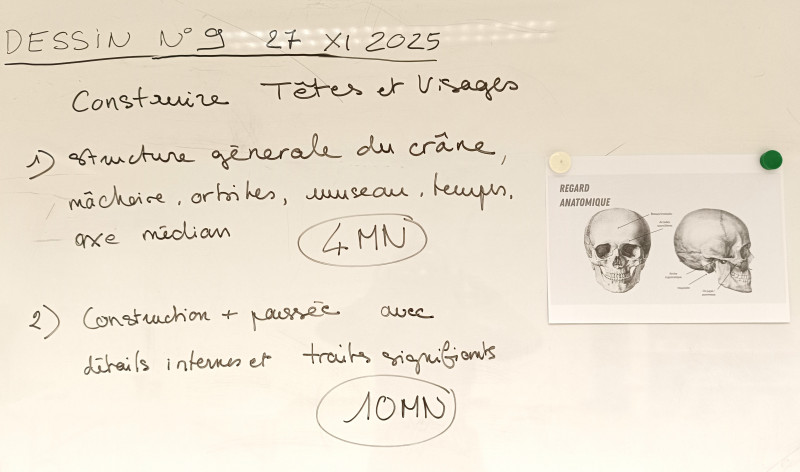 DESSIN N°9 27 XI 2025
Construire Têtes et Visages
1) structure génerale du crâne,
mâchoire, orbites, museau, temps,
axe médian
4MN
2) Construction + poussée avec
détails internes et traits signifiants
10MN
REGARD
ANATOMIQUE